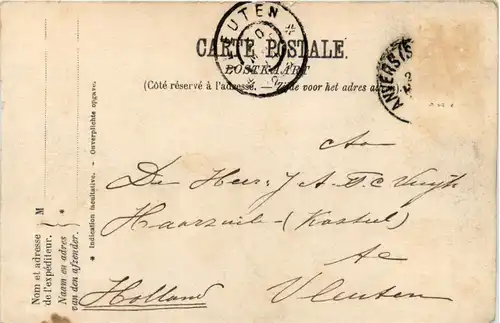 VLEUTEN
CARTE POSTALE.
POSTKAART
(Côté réservé à l'adresse. — Zijde voor het adres alleen).
ANVERS (S
Aan
De Heer J A F C
Haarzuile - (Kasteel)
te
Vleuten
Holland
* Indication facultative. - Onverplichte opgave.
M *
Nom et adresse
de l'expéditeur.
Naam en adres
van den afzender.